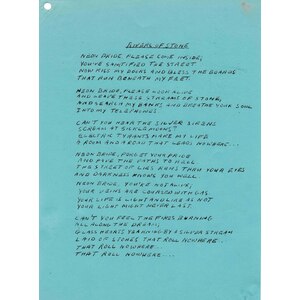 RIVERS OF STONE
NEON BRIDE, PLEASE COME INSIDE,
YOU'VE SANCTIFIED THE STREET
NOW KISS MY DOORS AND BLESS THE BOARDS
THAT RUN BENEATH MY FEET.
NEON BRIDE, PLEASE LOOK ALIVE
AND LEAVE THESE STREAMS OF STONE,
AND SEARCH MY BANKS AND BREATHE YOUR SOUL
INTO MY TELEPHONE!
CAN'T YOU HEAR THE SILVER SIRENS
SCREAM AT SICKLE MOONS?
ELECTRIC TYRANTS MAKE MY LIFE
A ROOM AND A ROAD THAT LEADS NOWHERE...
NEON BRIDE, FORGET YOUR PRIDE
AND PAVE THE PATHS TO HELL
THE STREET OF LIES HEARS THEN YOUR EYES
AND DARKNESS KNOWS YOU WELL.
NEON BRIDE, YOU'RE NOT ALIVE,
YOUR VEINS ARE COURSED WITH GAS
YOUR LIFE IS LIGHT AND LIKE AS NOT
YOUR LIGHT MIGHT NEVER LAST.
CAN'T YOU FEEL THE FIRES BURNING
ALL ALONG THE
GLASS HEARTS YEARNING BY A SILVER STREAM
LAID OF STONES THAT ROLL NOWHERE.
THAT ROLL NOWHERE...
THAT ROLL NOWHERE...